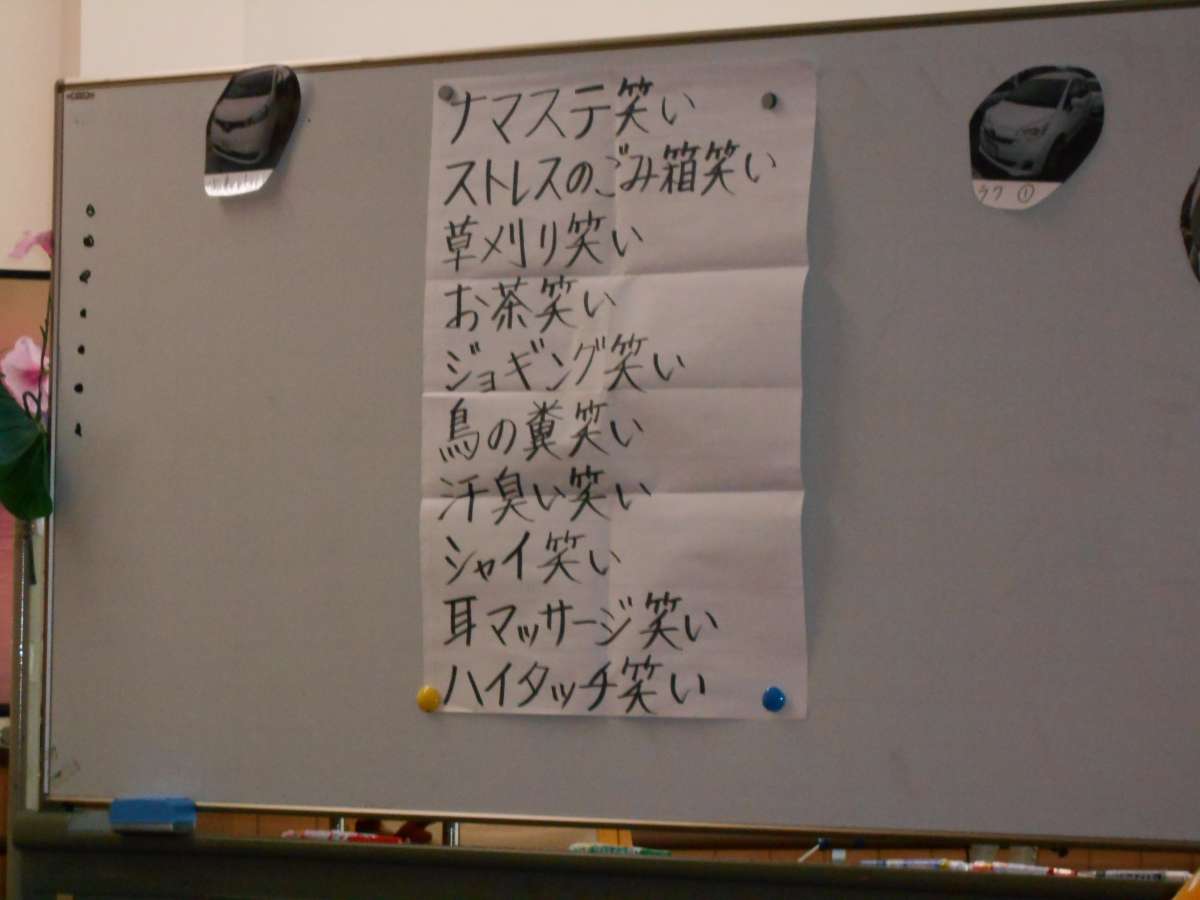 ナマステ笑い
ストレスのごみ箱笑い
草刈り笑い
お茶笑い
ジョギング笑い
鳥の糞笑い
汗臭い笑い
シャイ笑い
耳マッサージ笑い
ハイタッチ笑い
ラク ①